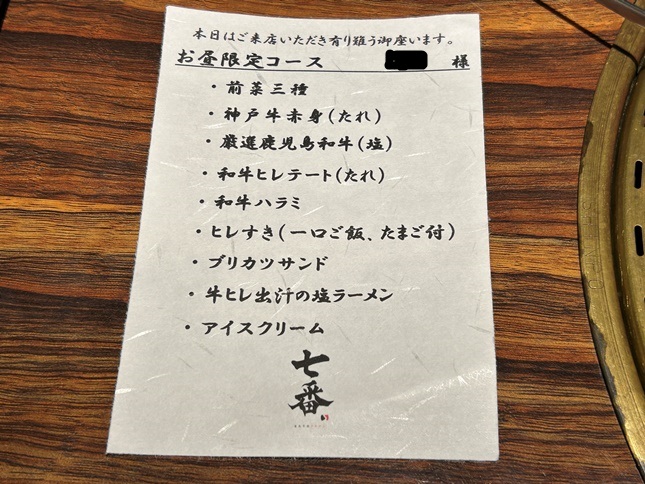 本日はご来店いただき有り難う御座います。
お昼限定コース 様
・前菜三種
・神戸牛赤身(たれ)
・厳選鹿児島和牛(塩)
・和牛ヒレテート(たれ)
・和牛ハラミ
・ヒレすき(一口ご飯、たまご付)
・ブリカツサンド
・牛ヒレ出汁の塩ラーメン
・アイスクリーム
七番